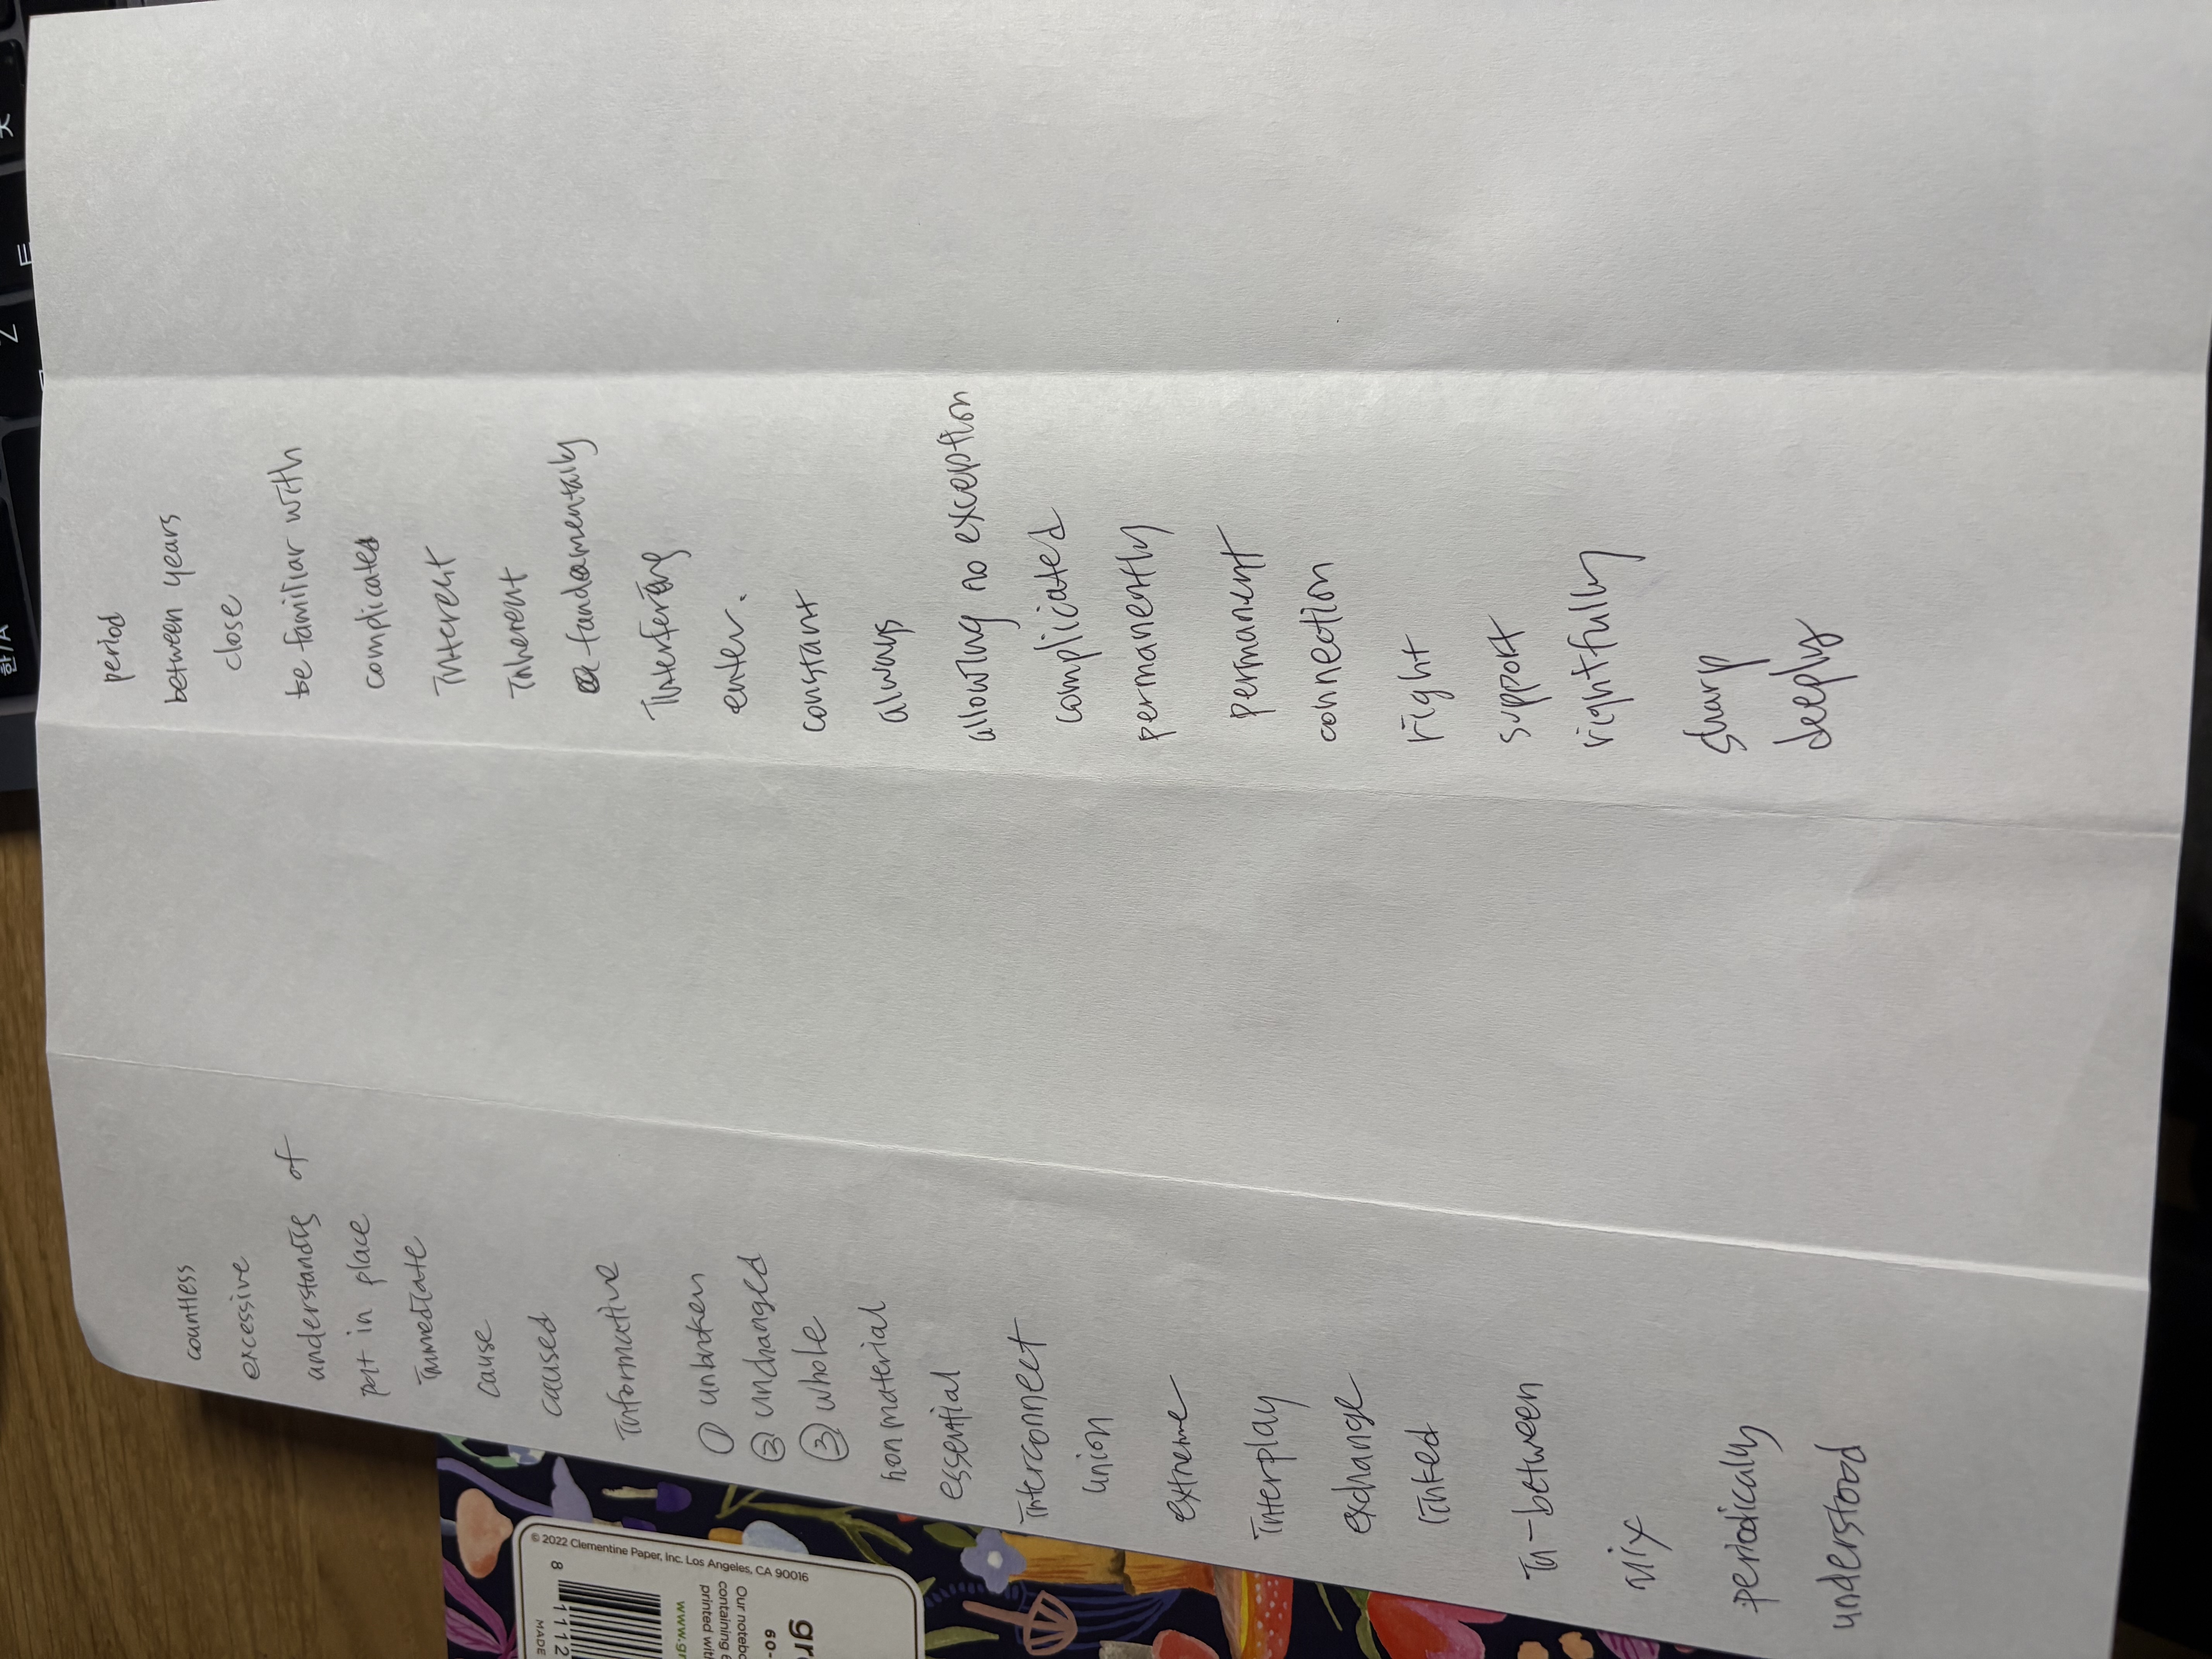 countless
excessive
understanding of
put in place
immediate
cause
caused
informative
① unbroken
② unchanged
③ whole
nonmaterial
essential
interconnect
union
extreme
interplay
exchange
linked
in-between
mix
periodically
understood
period
between years
close
be familiar with
complicated
inherent
inherent
fundamentally
interfering
enter.
constant
always
allowing no exception
complicated
permanently
permanent
connection
right
support
rightfully
sharp
deeply
© 2022 Clementine Paper, Inc. Los Angeles, CA 90016
8
1112
MADE
Our noteb
containing
printed wit
www.gr
gr
60-
한/A
Z
ㅌ
ㅊ